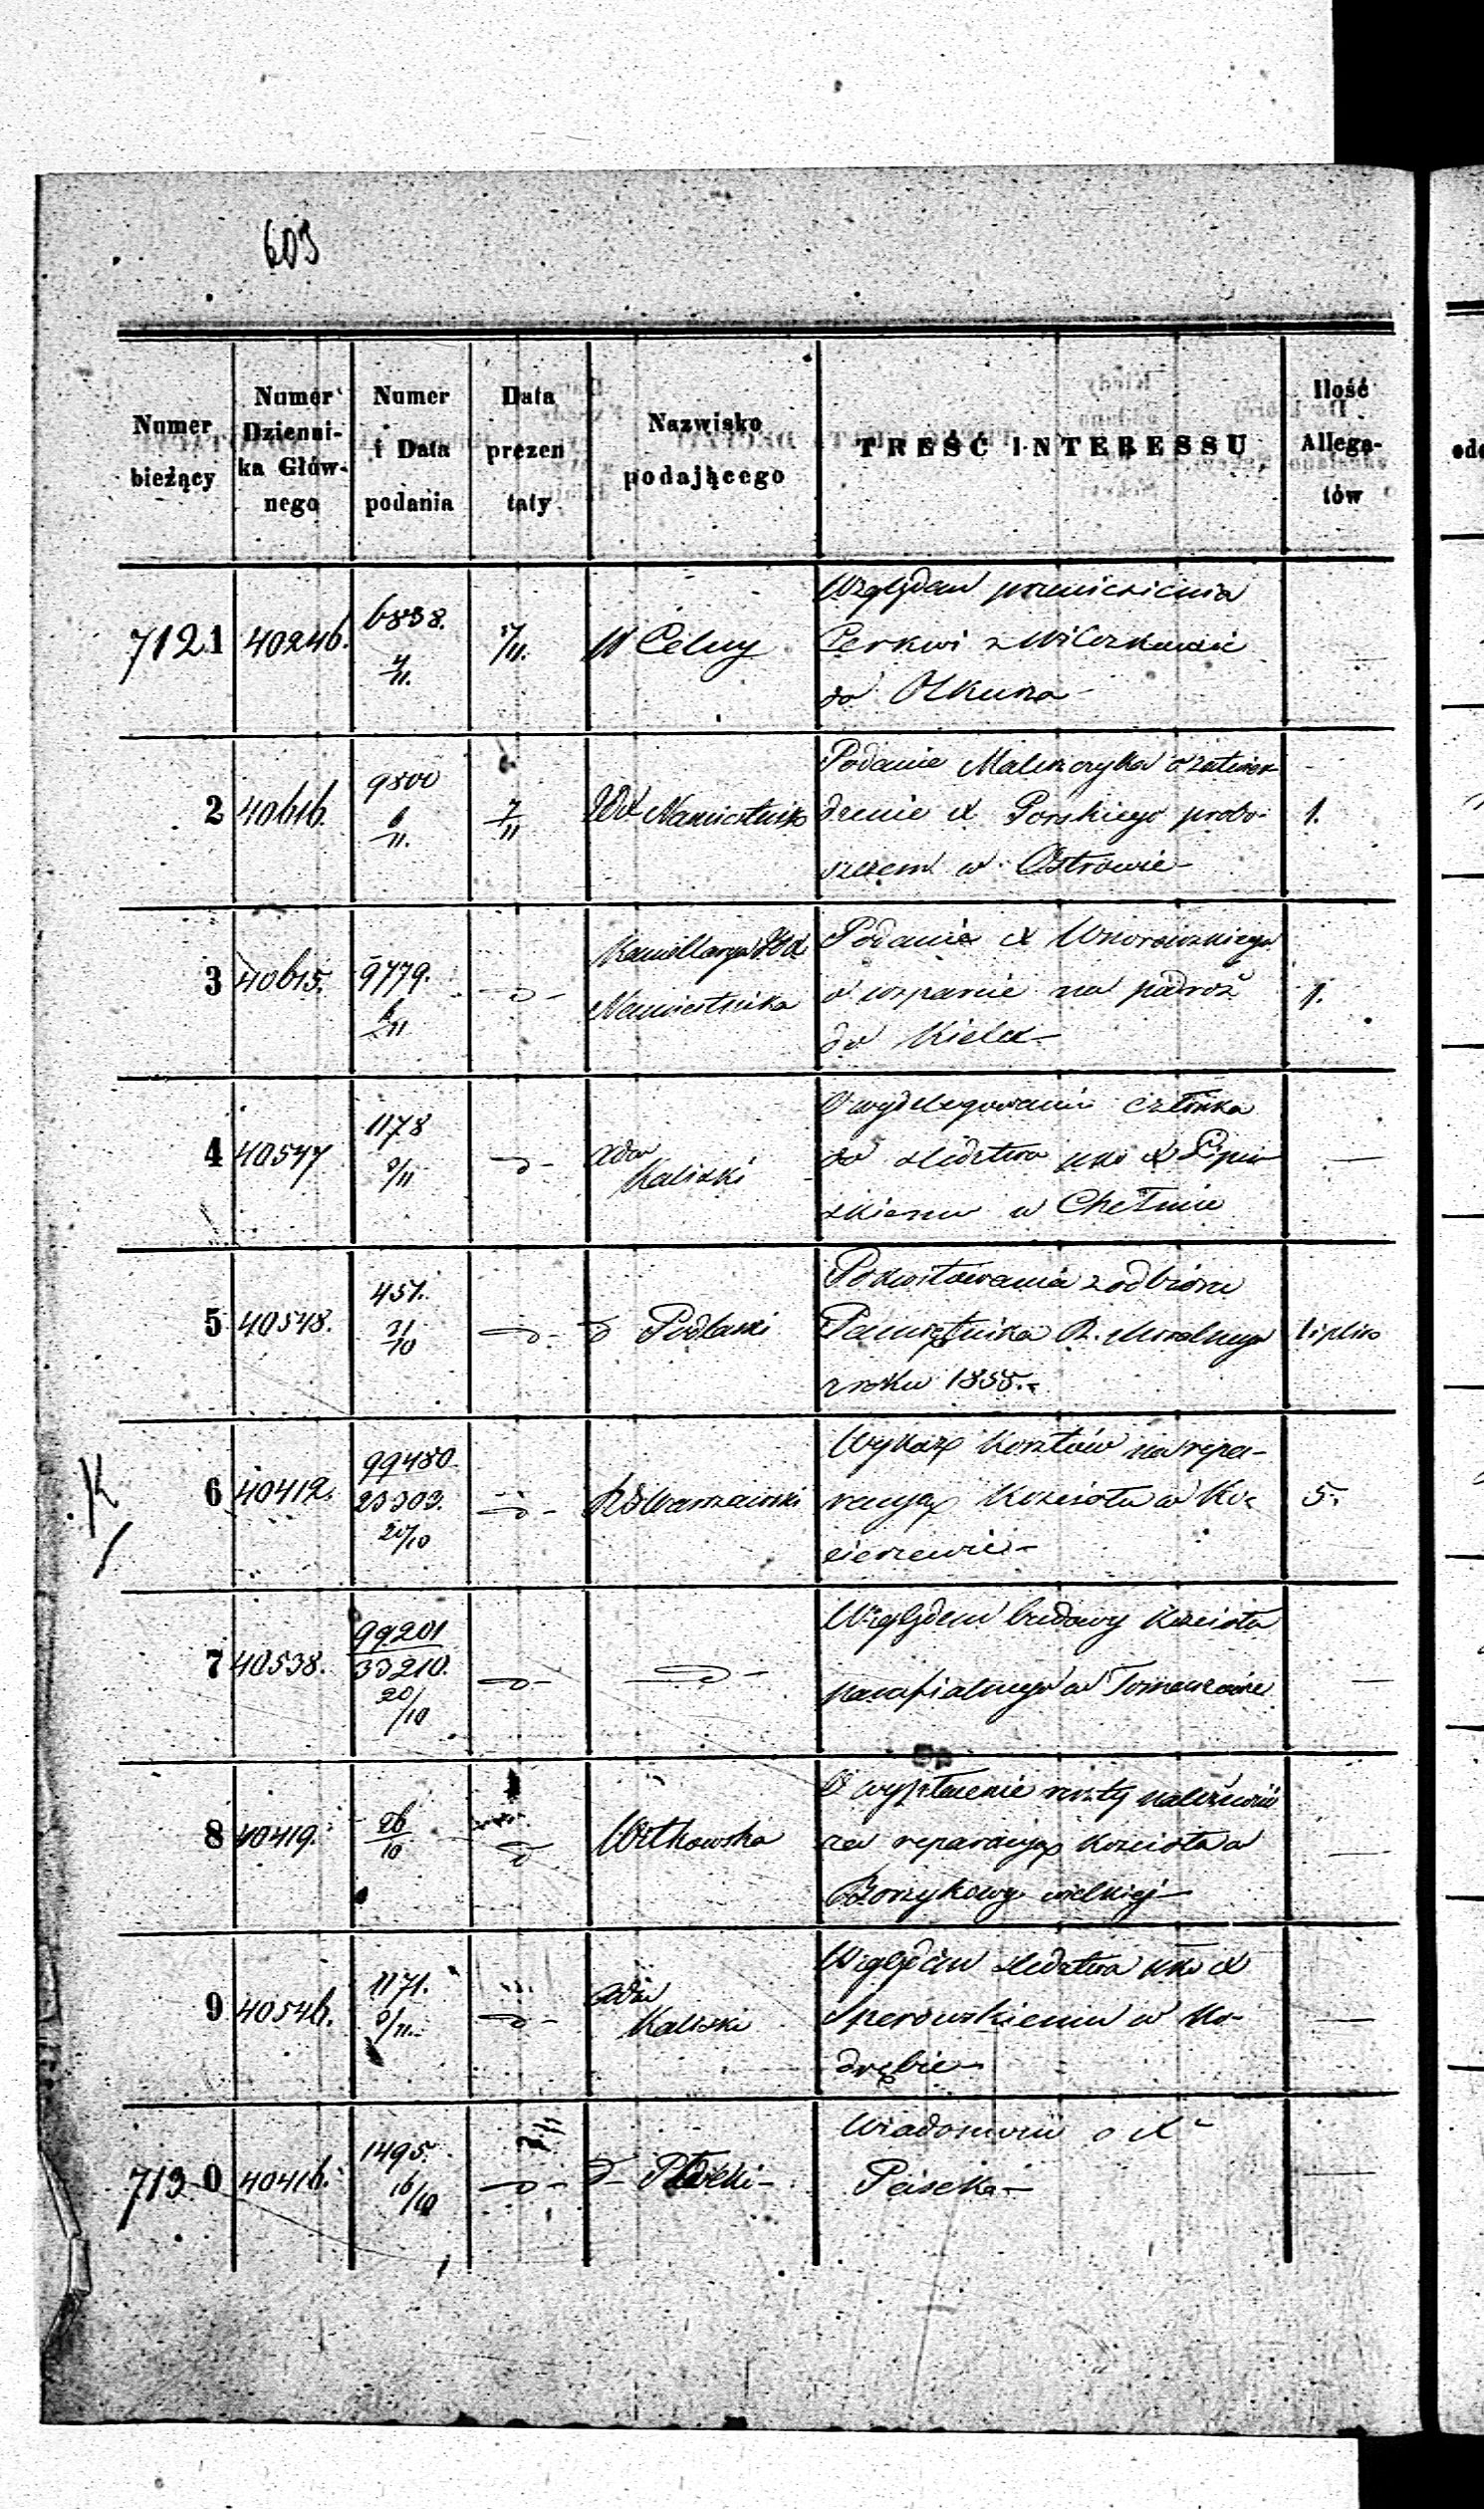 603
Numer bieżący
Numer Dzienni-ka Głów-nego
Numer i Data podania
Data prezen taty
Nazwisko podającego
TREŚĆ INTERESSU
Ilość Allega-tów
7121 40246. 6838. 4/11. 5/11. W Celny Względem przeniesienia
Cerkwi z Wilczkowic
do Olkusza
2 40616. 9800 6/11. 7/11 Namiestnik Podanie Maliszczyka o zatwier
dzenie X Porskiego probo-
szczem w Ostrowie 1.
3 40615. 9779. 6/11 Kancellarya
Namiestnika
Podanie X Wnorowskiego
o wsparcie na podróż
do Kielc 1.
4 40547 1178 3/11 Adm
Kaliski
O wydelegowanie członka
do śledztwa pko X Lipiń
skiemu w Chełmie
5 40548. 457. 31/10 Podlaski
Pokwitowania z odbioru
Pamiętnika R. Moralnego
z roku 1855.
6 40412. 99480 23303. 20/10 R. G. Warszawski
Wykaz kosztów na repa-
racyą kościoła w Ko-
cierzewie 5.
7 40538. 99201 33210. 20/10
Względem budowy kościoła
parafialnego w Tomaszowie
8 40419. 26/10 Witkowska
O wypłacenie reszty należności
za reparacyą kościoła w
Borzykowy wielkiej
9 40546. 1171. 3/11. Adm
Kaliski
Względem śledztwa pko X
Sperowskiemu w Ko-
drębie
7130 40416. 1495. 16/10 Płocki
Wiadomości o X
Peiseka
K